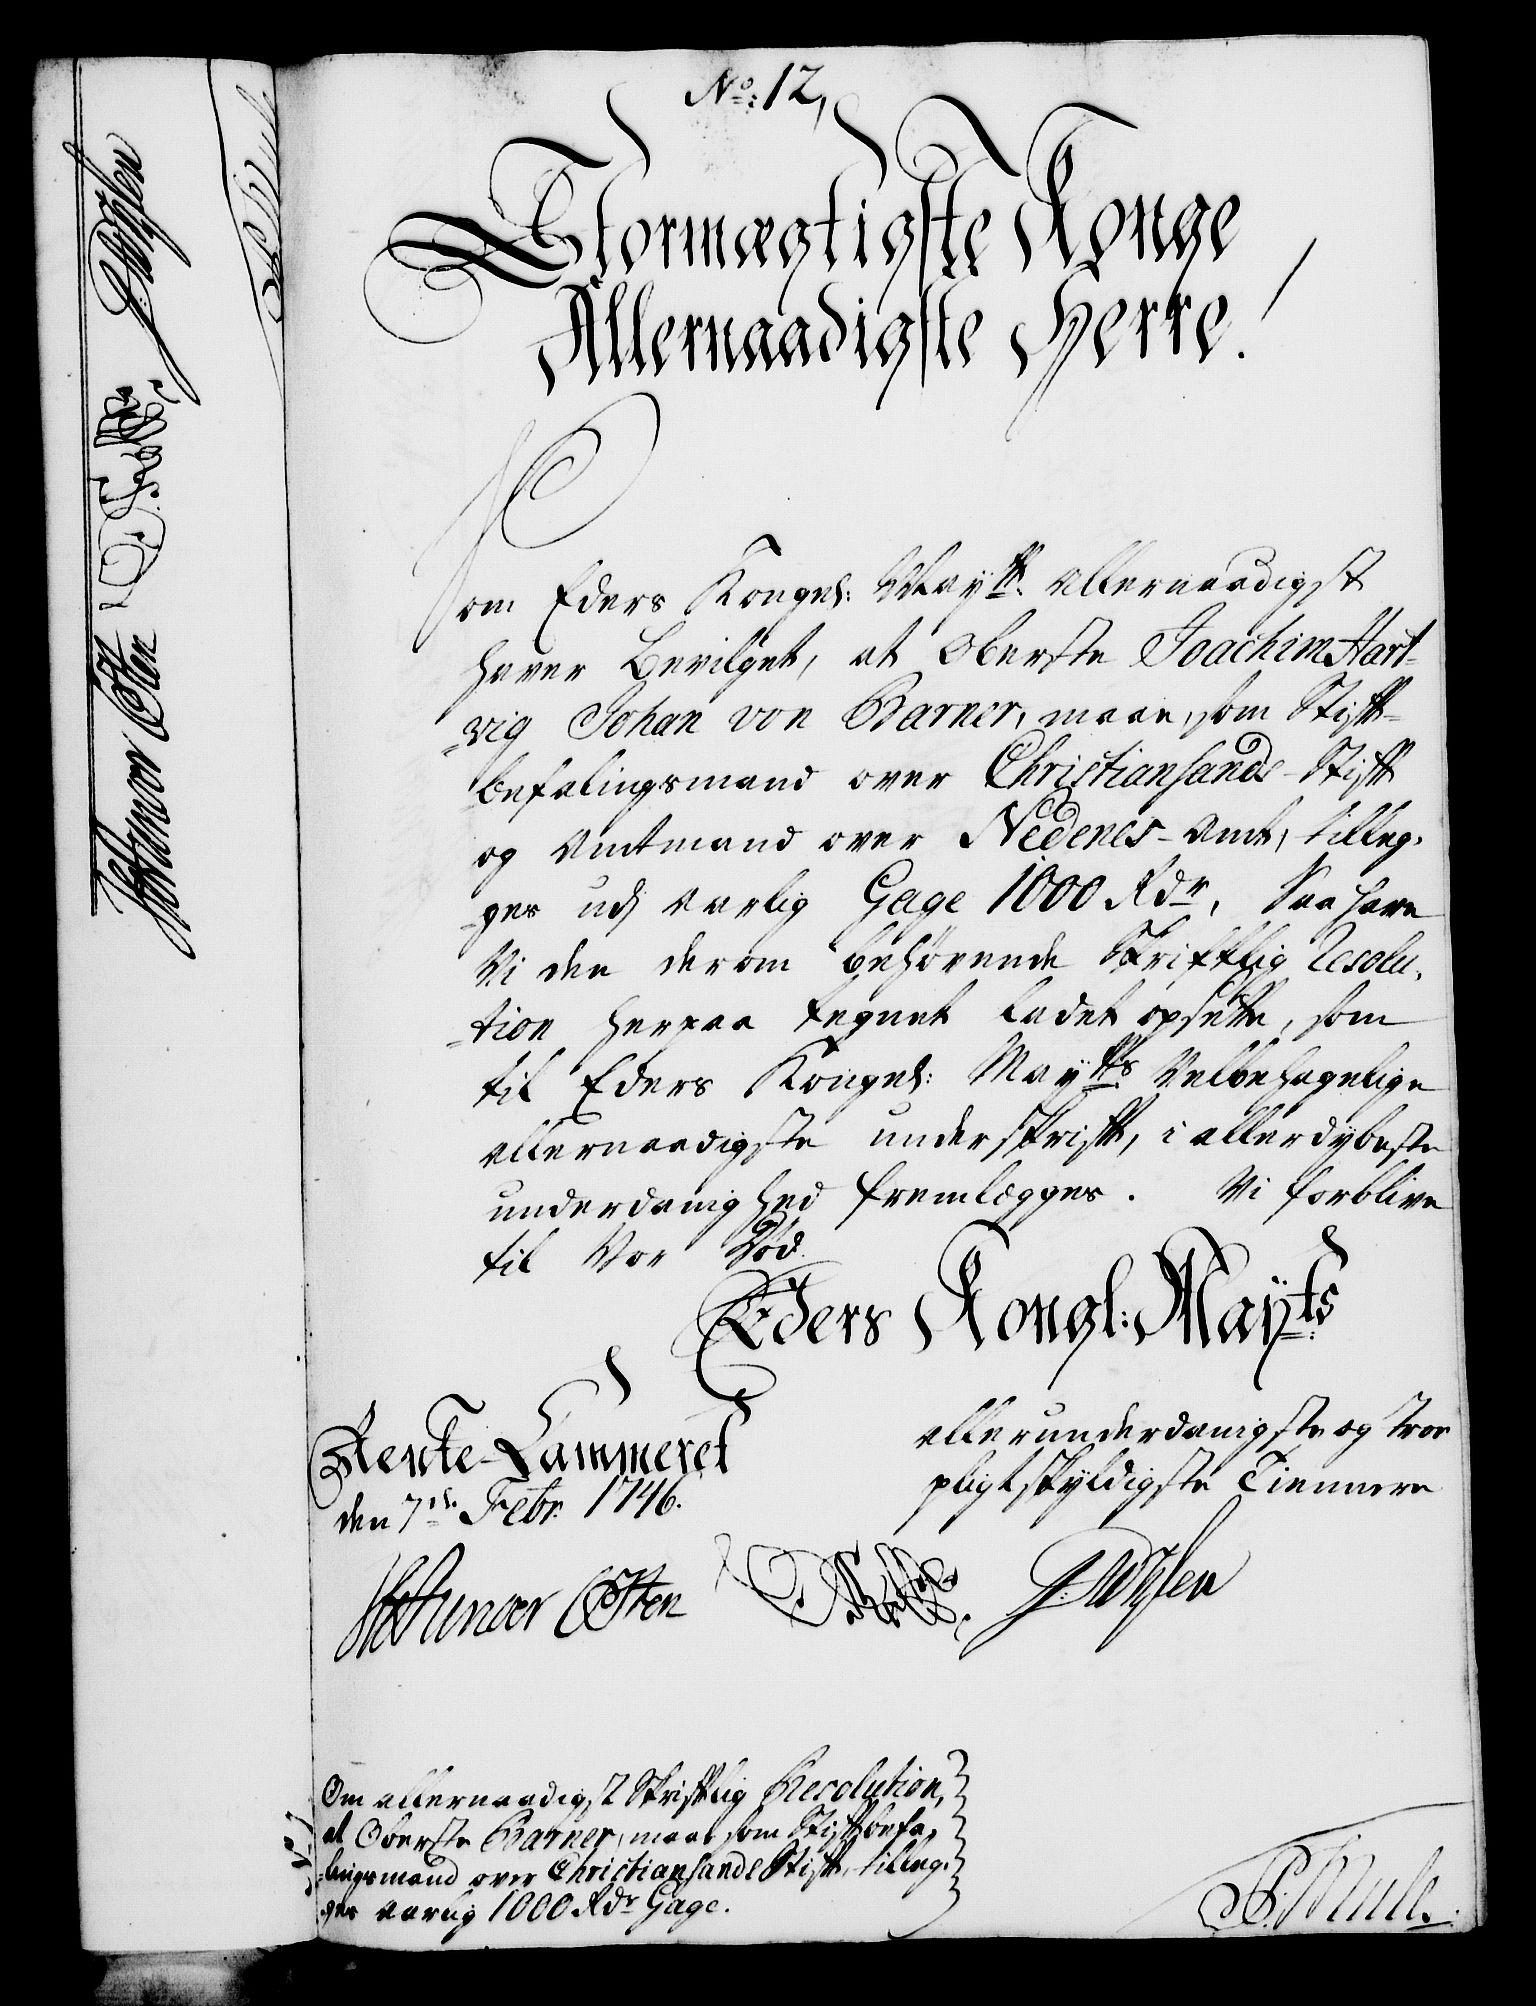 No: 12,
Stormægtigste Konge
Allernaadigste Herre!
Som Eders Kongel: Maytt. allernaadigst
haver bevilget, at Oberste Joachim Hart-
vig Johan von Barner, maae, som Stift-
befalingsmand over Christiansands-Stift
og Amtmand over Nedenes-Amt, tilleg-
ges udj aarlig Gage 1000 Rdr, Saa have
Vi den derom behørende Skriftlig Resolu-
tion herpaa tegnet ladet opsætte, som
til Eders Kongel: Maytts Velbehagelige
allernaadigste underskrift, i allerdybeste
underdanighed fremlægges. Vi forblive
til Vor Død
Eders Kongl: Mayts
allerunderdanigste og troe
pligtskyldigste Tiennere
Rente-Cammeret
den 7de Febr. 1746.
Om allernaadigst Skriftlig Resolution,
at Oberste Barner, maae som Stiftbefa-
lingsmand over Christiansands Stift, tilleg-
ges aarlig 1000 Rdr Gage.